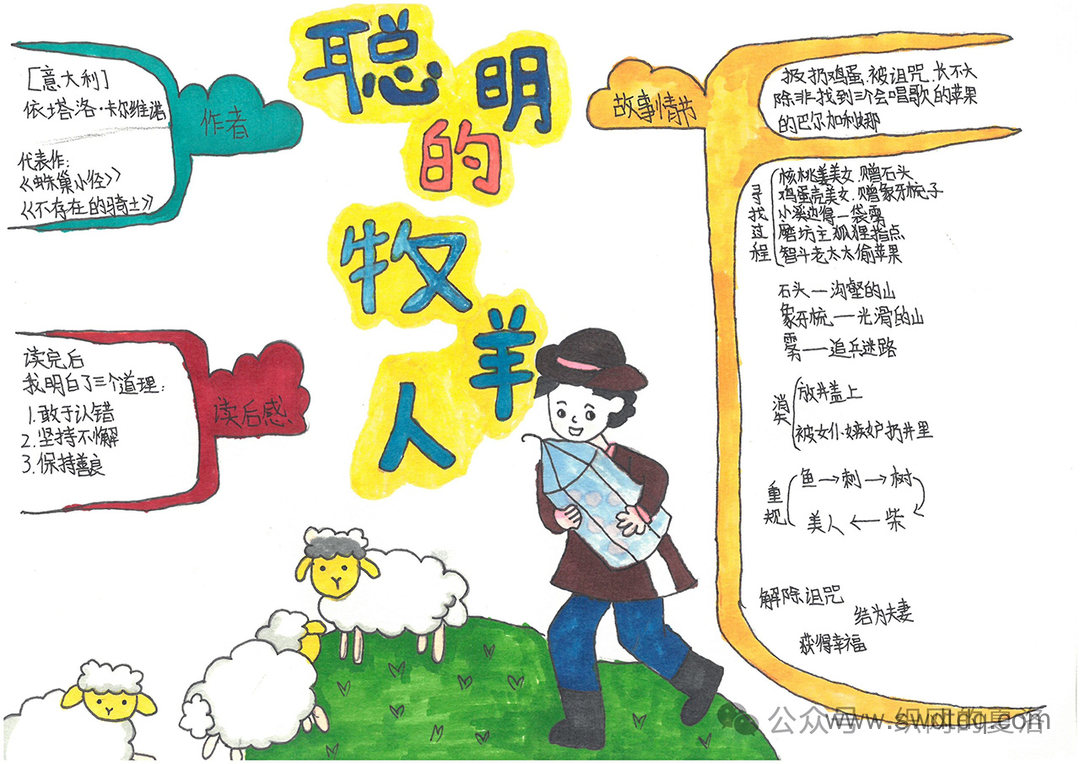 聪明的牧羊人
作者
[意大利]
依·塔洛·卡尔维诺
代表作:
《蛛巢小径》
《不存在的骑士》
读后感
读完后
我明白了三个道理:
1.敢于认错
2.坚持不懈
3.保持善良
故事情节
扔鸡蛋,被诅咒,长不大
除非找到三个会唱歌的苹果
的巴尔加利娜
寻找过程
核桃美女.赠石头
鸡蛋壳美女.赠象牙梳子
小溪边得一袋雾
磨坊主狐狸指点
智斗老太太偷苹果
石头—沟壑的山
象牙梳—光滑的山
雾—追兵迷路
消失
放井盖上
被女仆嫉妒扔井里
重现
鱼→刺→树
美人←柴
解除诅咒
结为夫妻
获得幸福
公众号
www.swdtdq.com